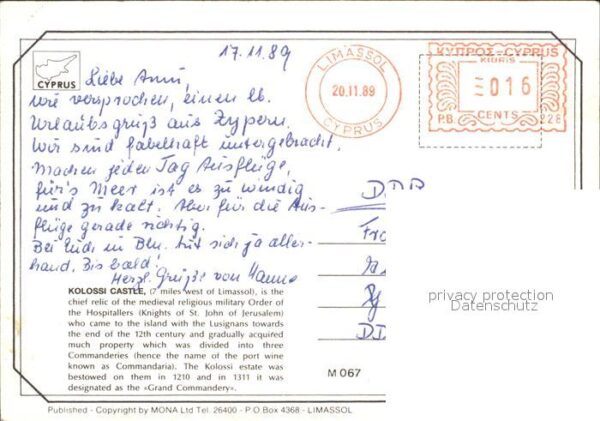 17.11.89
CYPRUS
Liebe
wie versprochen, einen lb.
Urlaubsgruß aus Zypern.
Wir sind fabelhaft untergebracht,
machen jeden Tag Ausflüge,
für's Meer ist es zu windig
und zu kalt. Aber für die Aus-
flüge gerade richtig.
Bei Euch in Bln. tut sich ja aller-
hand. Bis bald!
Herzl. Grüße von Hanna
LIMASSOL
20.11.89
CYPRUS
ΚΥΠΡΟΣ-CYPRUS
KIBRIS
016
CENTS
P.B. 228
DDR
privacy protection
Datenschutz
KOLOSSI CASTLE, (7 miles west of Limassol), is the
chief relic of the medieval religious military Order of
the Hospitallers (Knights of St. John of Jerusalem)
who came to the island with the Lusignans towards
the end of the 12th century and gradually acquired
much property which was divided into three
Commanderies (hence the name of the port wine
known as Commandaria). The Kolossi estate was
bestowed on them in 1210 and in 1311 it was
designated as the «Grand Commandery».
M 067
Published - Copyright by MONA Ltd Tel. 26400 - P.O.Box 4368 - LIMASSOL